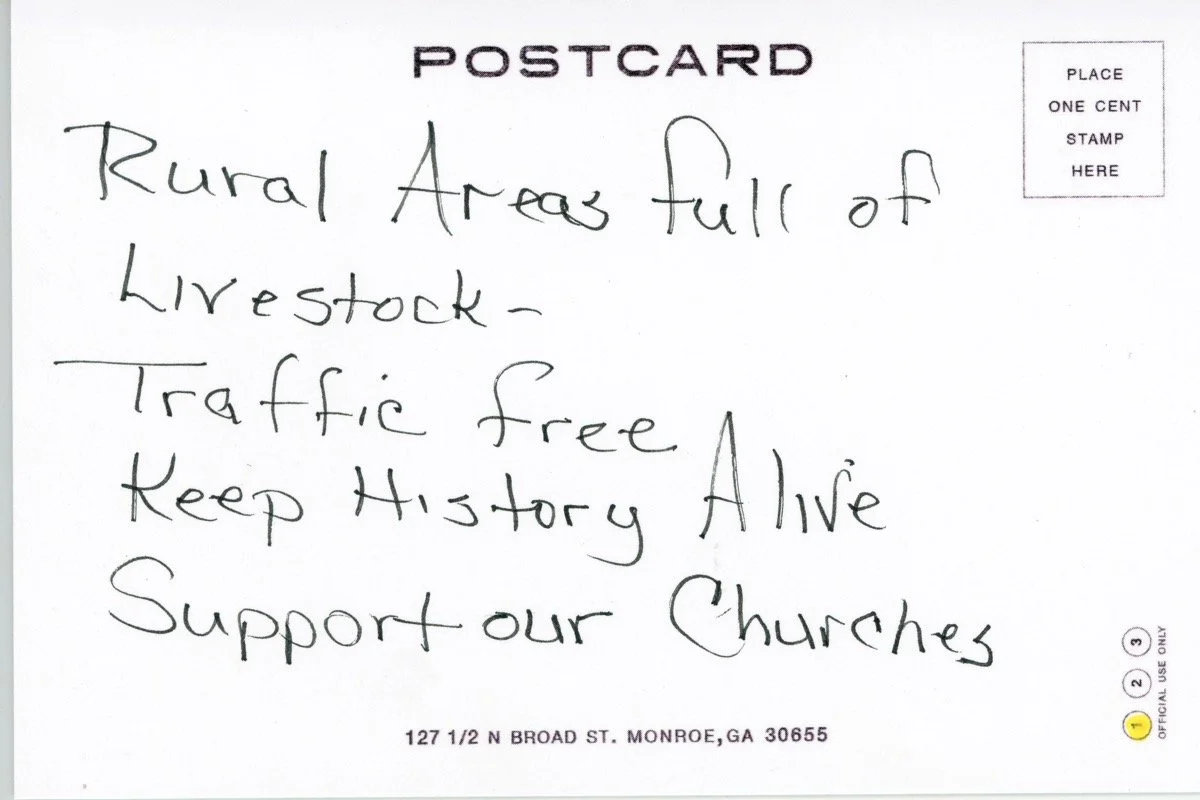 POSTCARD
PLACE
ONE CENT
STAMP
HERE
Rural Areas full of
Livestock -
Traffic free
Keep History Alive
Support our Churches
127 1/2 N BROAD ST. MONROE, GA 30655
1 2 3
OFFICIAL USE ONLY